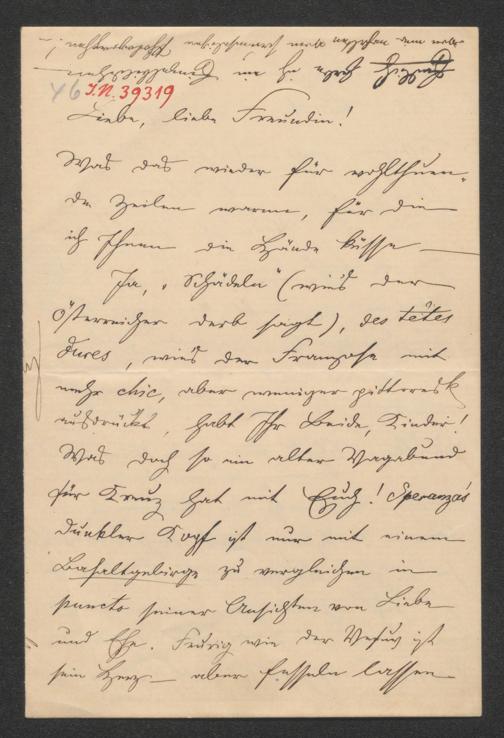 46 I.N. 39319
Liebe, liebe Freundin!
Was das wieder für wohlthuen-
de Zeilen waren, für die
ich Ihnen die Hände küsse —
Ja, „Schädeln" (wie's der
Österreicher derb sagt), des têtes
dures, wie's der Franzose mit
mehr chic, aber weniger pittoresk
ausdrückt, habt Ihr Beide, Kinder!
Was doch so ein alter Vagabund
für Kreuz hat mit Euch! Speranza's
dunkler Kopf ist nur mit einem
Basaltgebirge zu vergleichen in
puncto seiner Ansichten von Liebe
und Ehe. Feurig wie der Vesuv ist
sein Herz — aber fesseln lassen